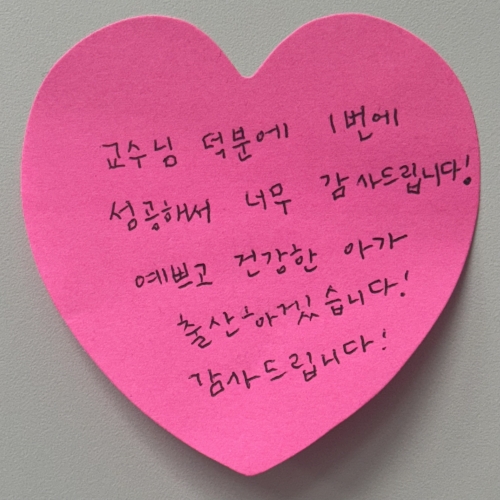 교수님 덕분에 1번에
성공해서 너무 감사드립니다!
예쁘고 건강한 아가
출산하겠습니다!
감사드립니다!